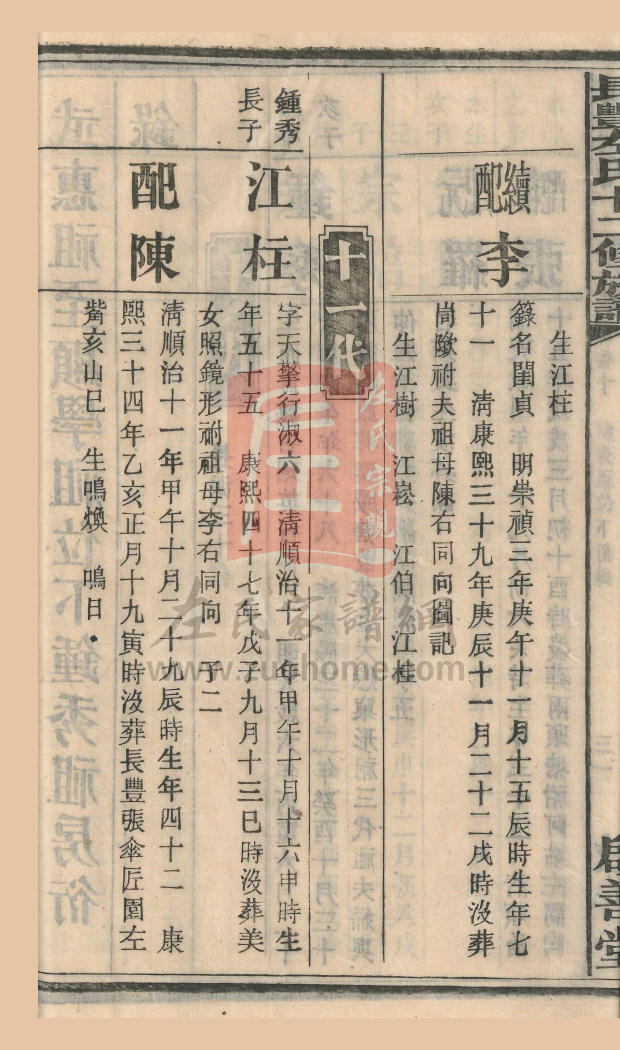 長豐左氏十二修族譜
啟善堂
生江柱
續配李
錄名閨貞 明崇禎三年庚午十一月十五辰時生年七
十一 清康熙三十九年庚辰十一月二十二戌時沒葬
祔夫祖母陳右同向圖記
生江樹 江崧 江伯 江桂
十一代
鍾秀
長子
江柱
字天擎行淑六 清順治十一年甲午十月十六申時生
年五十五 康熙四十七年戊子九月十三巳時沒葬美
女照鏡形祔祖母李右同向 子二
配陳
清順治十一年甲午十月二十九辰時生年四十二 康
熙三十四年乙亥正月十九寅時沒葬長豐張傘匠園左
觜亥山巳 生鳴煥 鳴日
左氏宗親
左氏家譜網